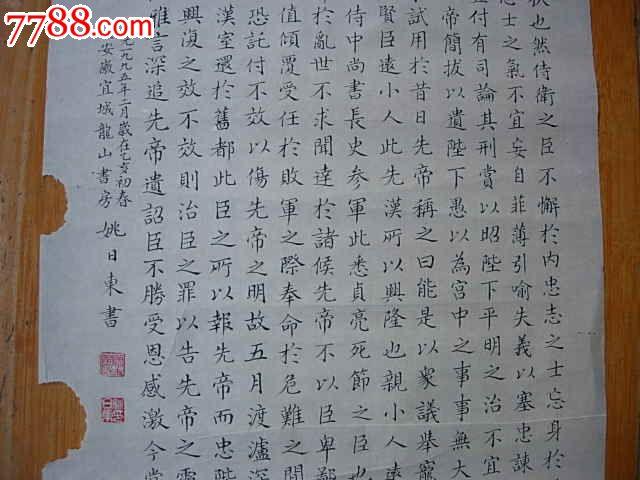 7788.com
秋也然侍衛之臣不懈於內忠志之士忘身於
志士之氣不宜妄自菲薄引喻失義以塞忠諫
付有司論其刑賞以昭陛下平明之治不宜
帝簡拔以遺陛下愚以為宮中之事事無大
試用於昔日先帝稱之曰能是以衆議舉寵
賢臣遠小人此先漢所以興隆也親小人遠
侍中尚書長史参軍此悉貞亮死節之臣也
於亂世不求聞達於諸候先帝不以臣卑鄙
值傾覆受任於敗軍之際奉命於危難之間
恐託付不效以傷先帝之明故五月渡瀘深
漢室還於舊都此臣之所以報先帝而忠陛
興復之效不效則治臣之罪以告先帝之靈
雅言深追先帝遺詔臣不勝受恩感激今當
九九五年二月歲在乙亥初春
安徽宜城龍山書房 姚日東書